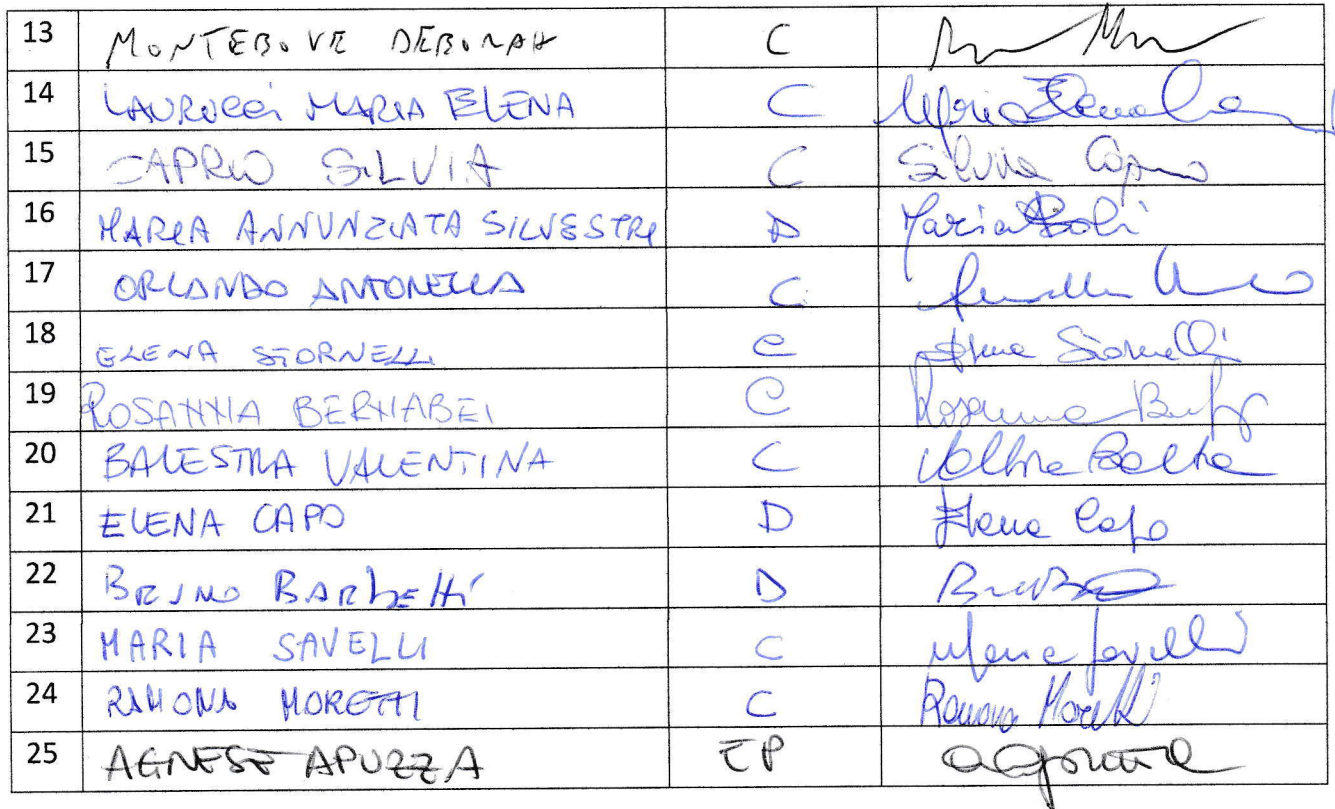 13 MONTEBOVE DEBORAH C
14 LAURUCCi MARIA ELENA C Maria Elena
15 CAPRIO SILVIA C Silvia Caprio
16 MARIA ANNUNZIATA SILVESTRI D Maria
17 ORLANDO ANTONELLA C
18 ELENA STORNELLI C Elena Stornelli
19 ROSANNA BERNABEI C Rosanna
20 BALESTRA VALENTINA C
21 ELENA CAPO D Elena Capo
22 BRUNO BARbetti D
23 MARIA SAVELLI C Maria Savelli
24 RAMONA MORETTI C Ramona Moretti
25 AGNESE APUZZA EP